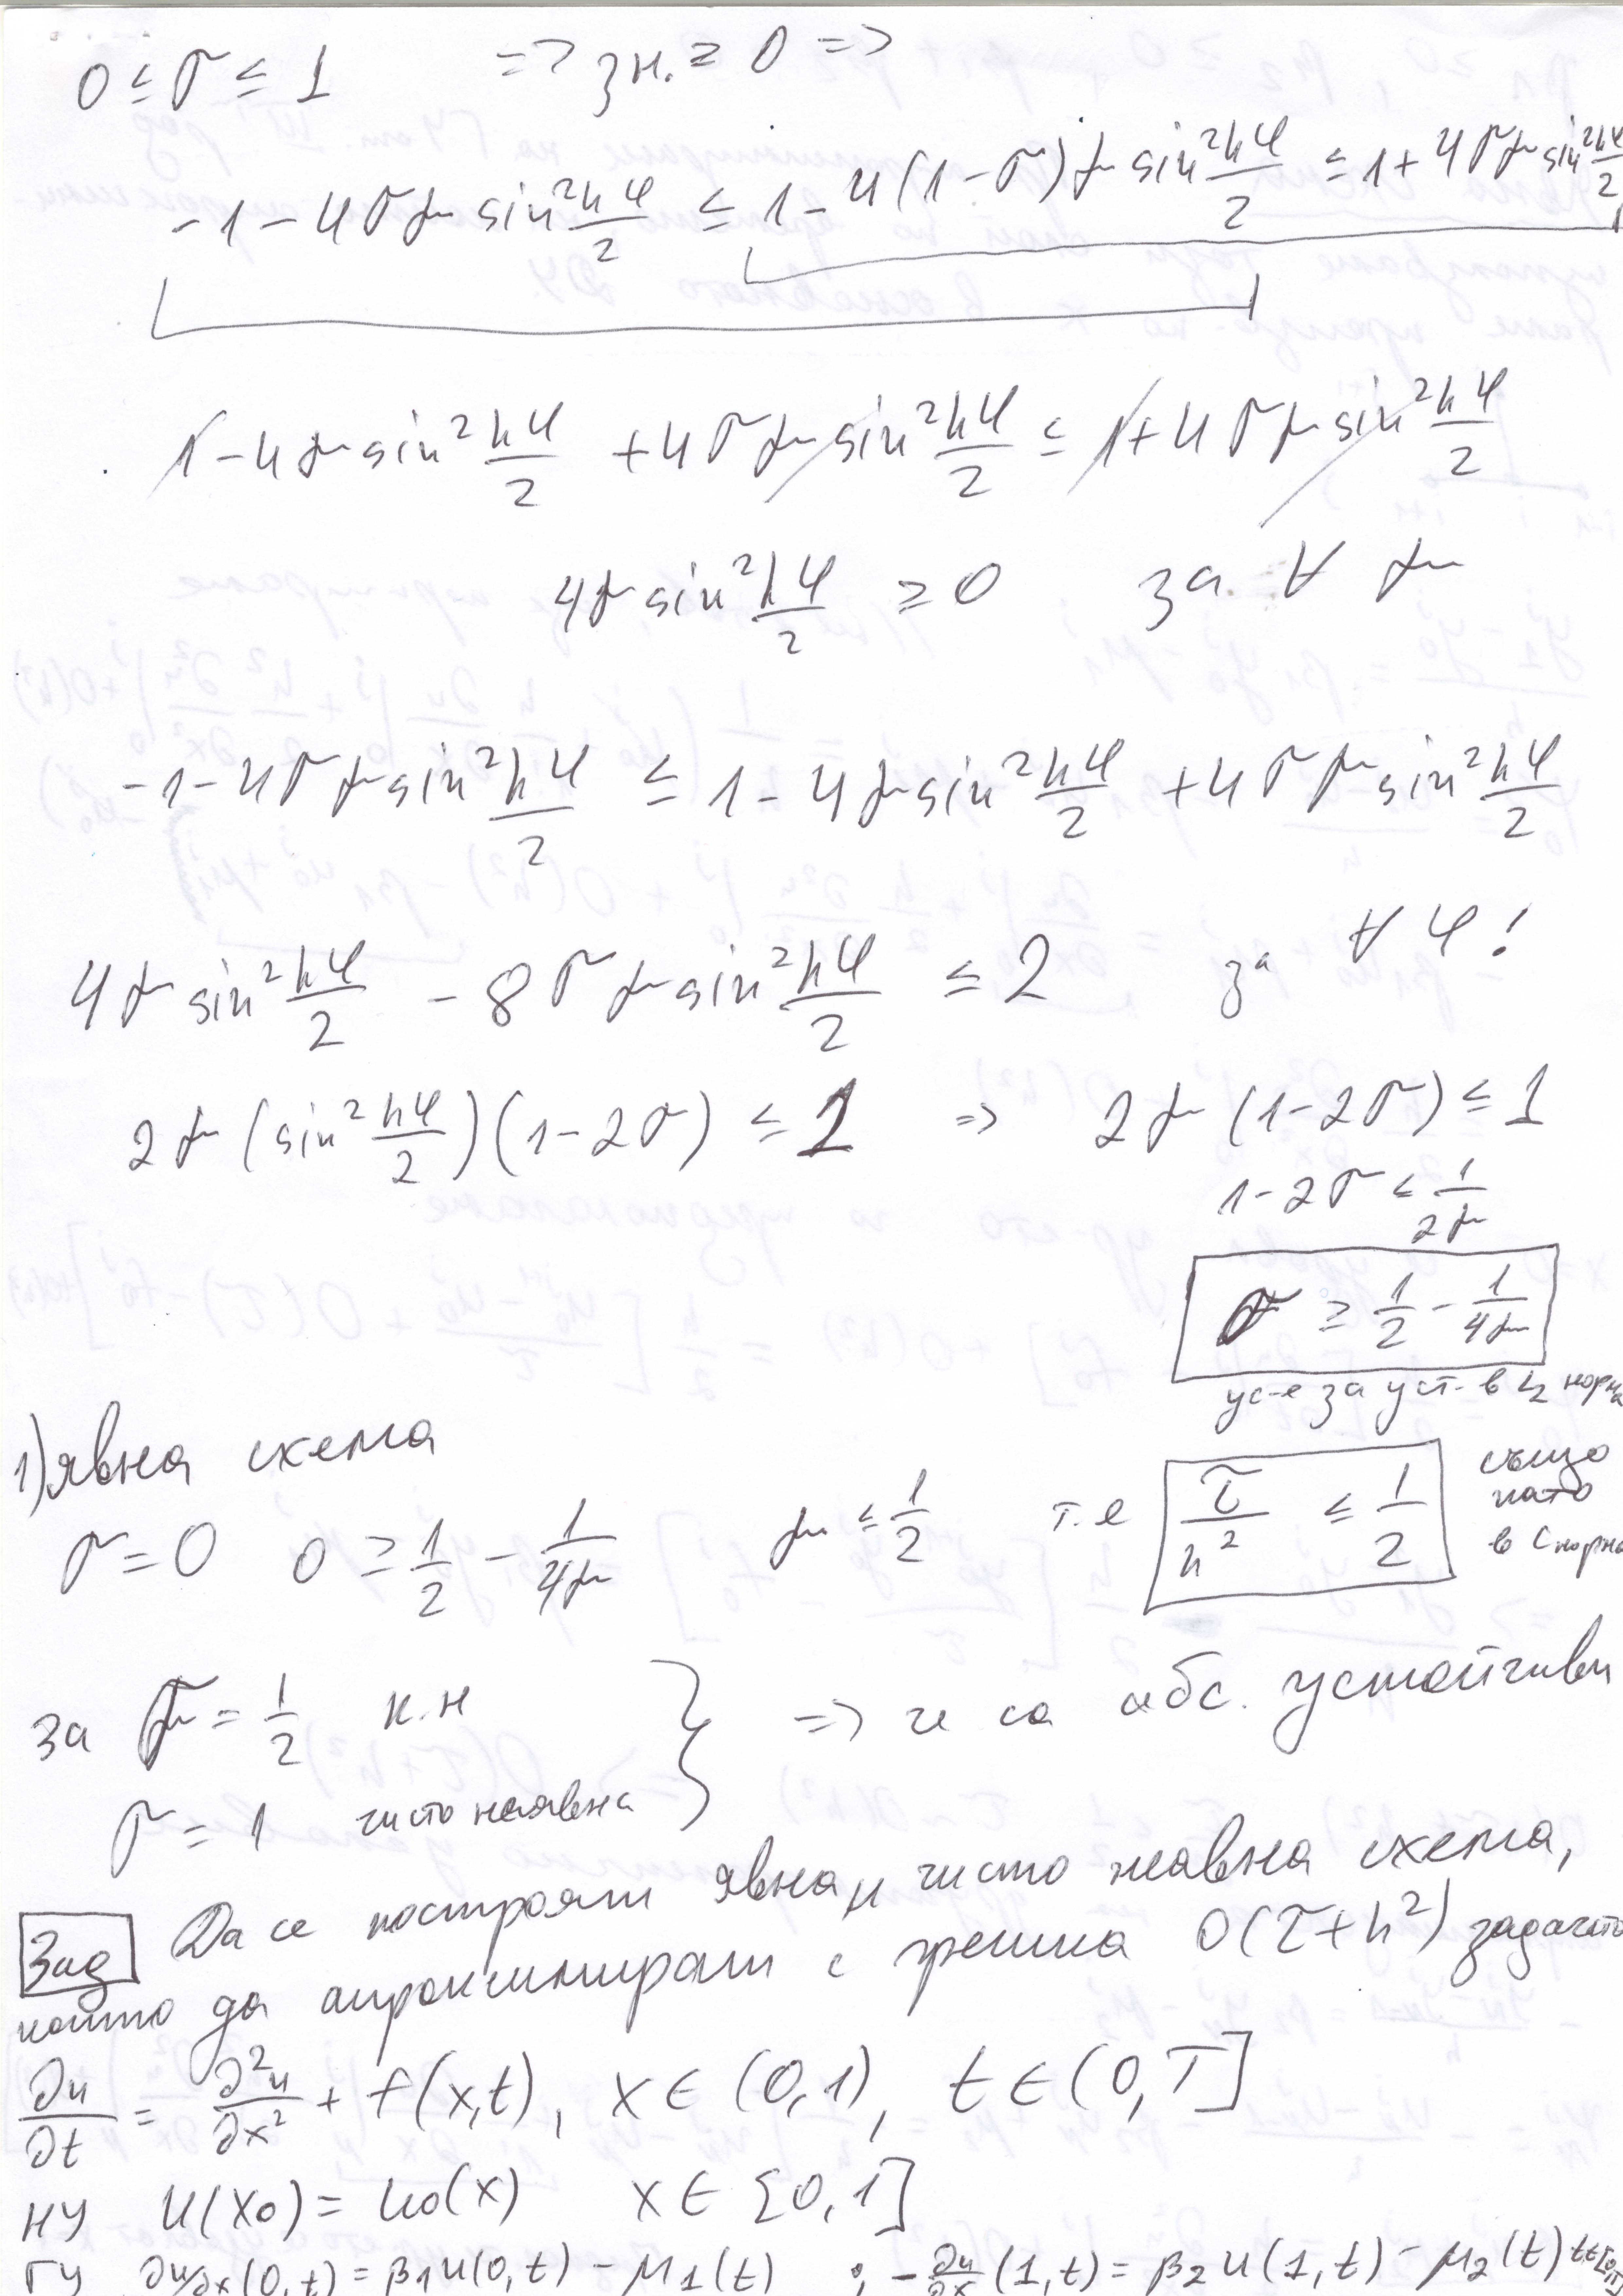 0 ≤ σ ≤ 1 => зн. ≥ 0 =>
-1 - 4σμ sin² hφ/2 ≤ 1 - 4(1-σ)μ sin² hφ/2 ≤ 1 + 4σμ sin² hφ/2
1 - 4μ sin² hφ/2 + 4σμ sin² hφ/2 ≤ 1 + 4σμ sin² hφ/2
4μ sin² hφ/2 ≥ 0 за ∀ μ
-1 - 4σμ sin² hφ/2 ≤ 1 - 4μ sin² hφ/2 + 4σμ sin² hφ/2
4μ sin² hφ/2 - 8σμ sin² hφ/2 ≤ 2 за ∀ φ!
2μ (sin² hφ/2)(1-2σ) ≤ 1 => 2μ (1-2σ) ≤ 1
1-2σ ≤ 1/2μ
σ ≥ 1/2 - 1/4μ
ус-е за уст-в L₂ норма
1) явна схема
σ = 0 0 ≥ 1/2 - 1/4μ μ ≤ 1/2 т.е τ/h² ≤ 1/2 също като в C норма
за σ = 1/2 к.н
σ = 1 чисто неявна } => че са абс. устойчиви
Зад Да се построят явна и чисто неявна схема,
които да апроксимират с грешка O(τ+h²) задачата
∂u/∂t = ∂²u/∂x² + f(x,t), x ∈ (0,1), t ∈ (0,T]
НУ u(x0) = u₀(x) x ∈ [0,1]
ГУ ∂u/∂x (0,t) = β₁u(0,t) - μ₁(t) ; -∂u/∂x (1,t) = β₂u(1,t) - μ₂(t)